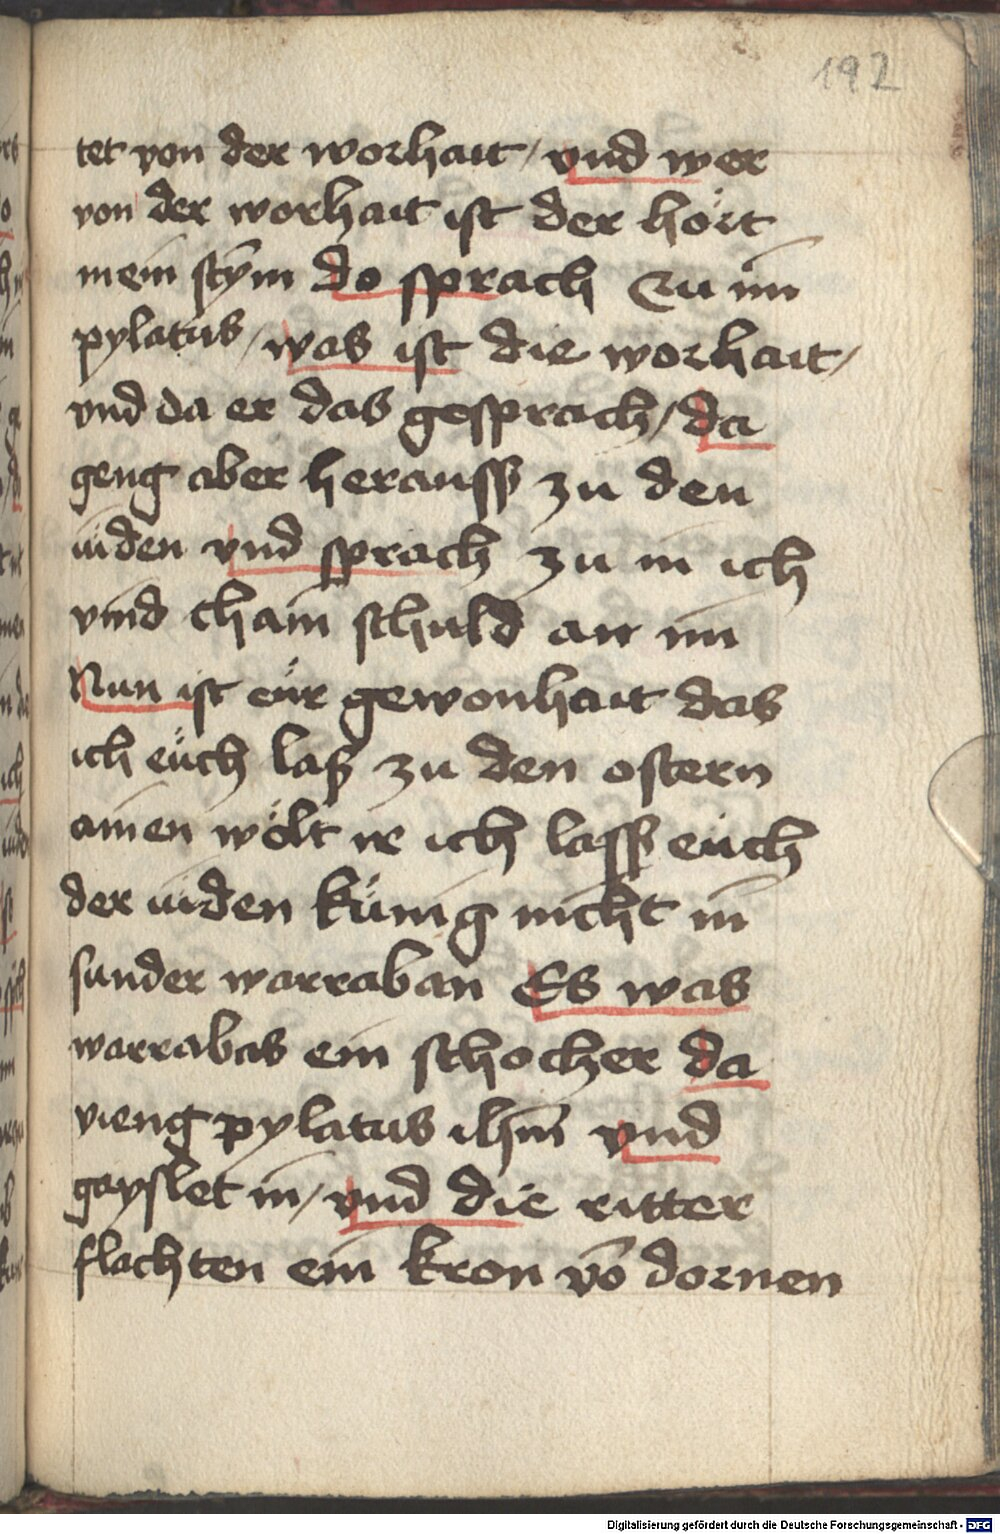 192
tet von der worhait / vnd wer
von der worhait ist der hört
mein stym do sprach Zu im
pylatus / was ist die worhait /
vnd da er das gesprach / da
geng aber herauss zu den
iuden vnd sprach zu in ich
vind chain schuld an im
Nun ist eür gewonhait das
ich eüch laß zu den ostern
ainen wölt ir ich lass eüch
der iuden künig nicht in
sunder warraban Es was
warrabas ein schocher da
vieng pylatus ihm̄ vnd
gayslet in / vnd die ritter
flachten ein kron vō dornen
Digitalisierung gefördert durch die Deutsche Forschungsgemeinschaft - DFG